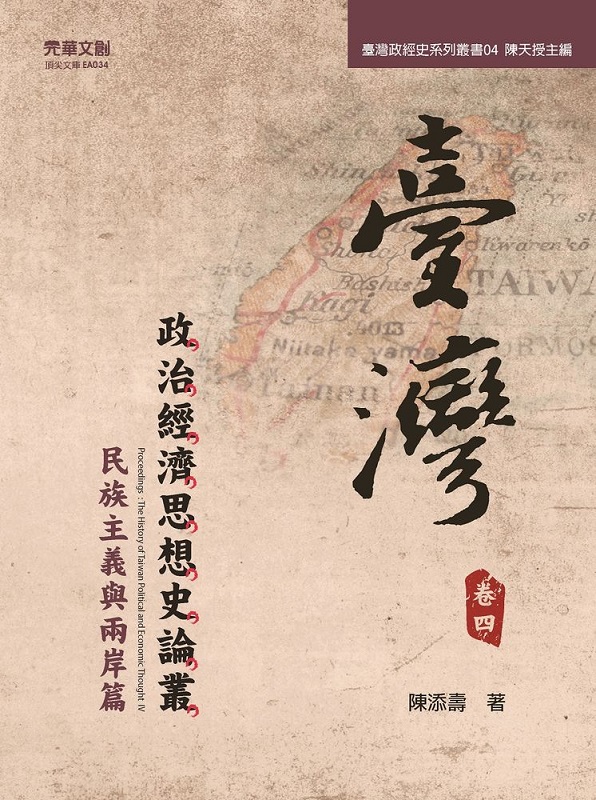 元華文創
頂尖文庫 EA034
臺灣政經史系列叢書04 陳天授主編
臺灣
政治經濟思想史論叢
Proceedings : The History of Taiwan Political and Economic Thought IV
民族主義與兩岸篇
卷四
陳添壽 著
Shinchiku
Giran
Shoka
Bashishi
Kagi
Niitaka yama
Tainan
TAIWA